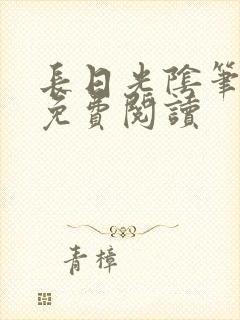 長日光陰筆
免費閱讀
青樟